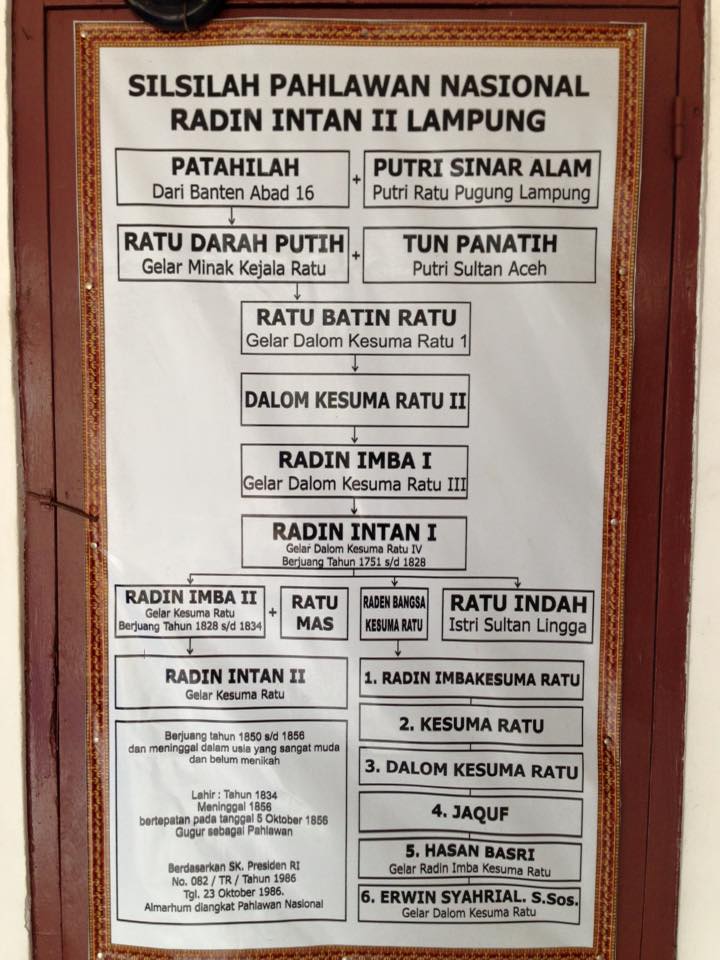 SILSILAH PAHLAWAN NASIONAL
RADIN INTAN II LAMPUNG
PATAHILAH
Dari Banten Abad 16
+
PUTRI SINAR ALAM
Putri Ratu Pugung Lampung
RATU DARAH PUTIH
Gelar Minak Kejala Ratu
+
TUN PANATIH
Putri Sultan Aceh
RATU BATIN RATU
Gelar Dalom Kesuma Ratu 1
DALOM KESUMA RATU II
RADIN IMBA I
Gelar Dalom Kesuma Ratu III
RADIN INTAN I
Gelar Dalom Kesuma Ratu IV
Berjuang Tahun 1751 s/d 1828
RADIN IMBA II
Gelar Kesuma Ratu
Berjuang Tahun 1828 s/d 1834
+
RATU
MAS
RADEN BANGSA
KESUMA RATU
RATU INDAH
Istri Sultan Lingga
RADIN INTAN II
Gelar Kesuma Ratu
Berjuang tahun 1850 s/d 1856
dan meninggal dalam usia yang sangat muda
dan belum menikah
Lahir : Tahun 1834
Meninggal 1856
bertepatan pada tanggal 5 Oktober 1856
Gugur sebagai Pahlawan
Berdasarkan SK. Presiden RI
No. 082 / TR / Tahun 1986
Tgl. 23 Oktober 1986.
Almarhum diangkat Pahlawan Nasional
1. RADIN IMBAKESUMA RATU
2. KESUMA RATU
3. DALOM KESUMA RATU
4. JAQUF
5. HASAN BASRI
Gelar Radin Imba Kesuma Ratu
6. ERWIN SYAHRIAL. S.Sos.
Gelar Dalom Kesuma Ratu